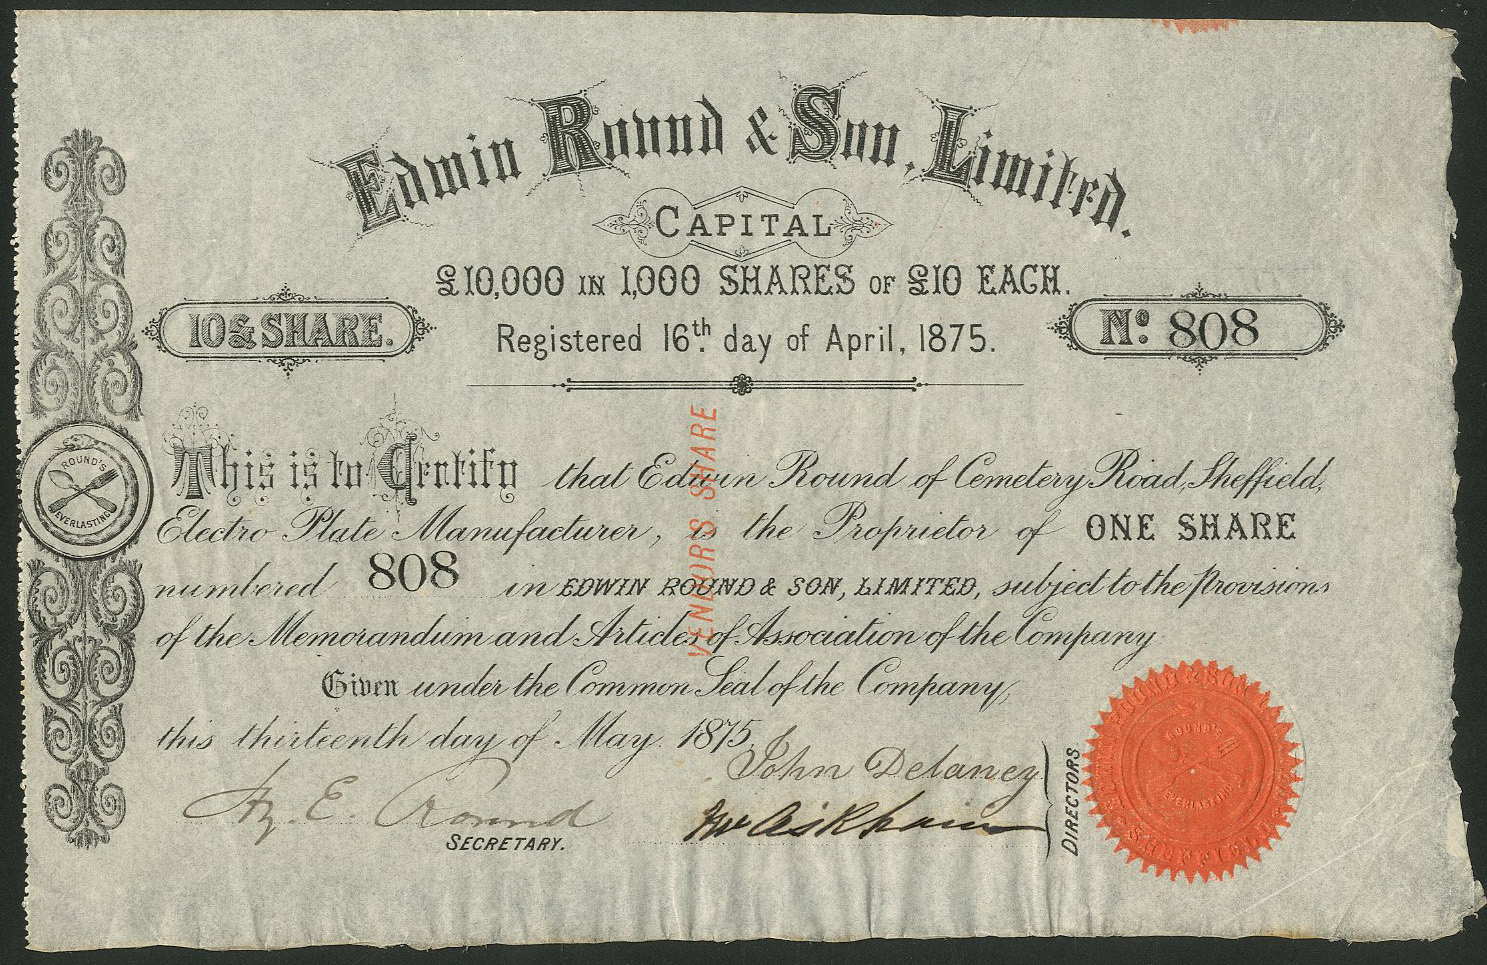 Edwin Round & Son, Limited.
CAPITAL
£10,000 IN 1,000 SHARES OF £10 EACH.
10£ SHARE.
Registered 16th. day of April, 1875.
No. 808
VENDORS SHARE
ROUND'S
EVERLASTING
This is to Certify that Edwin Round of Cemetery Road, Sheffield,
Electro Plate Manufacturer, is the Proprietor of ONE SHARE
numbered 808 in EDWIN ROUND & SON, LIMITED, subject to the provisions
of the Memorandum and Articles of Association of the Company
Given under the Common Seal of the Company,
this thirteenth day of May. 1875.
John Delaney
E. Round
SECRETARY.
DIRECTORS.
ROUND & SON
ROUND'S
EVERLASTING
SHEFFIELD